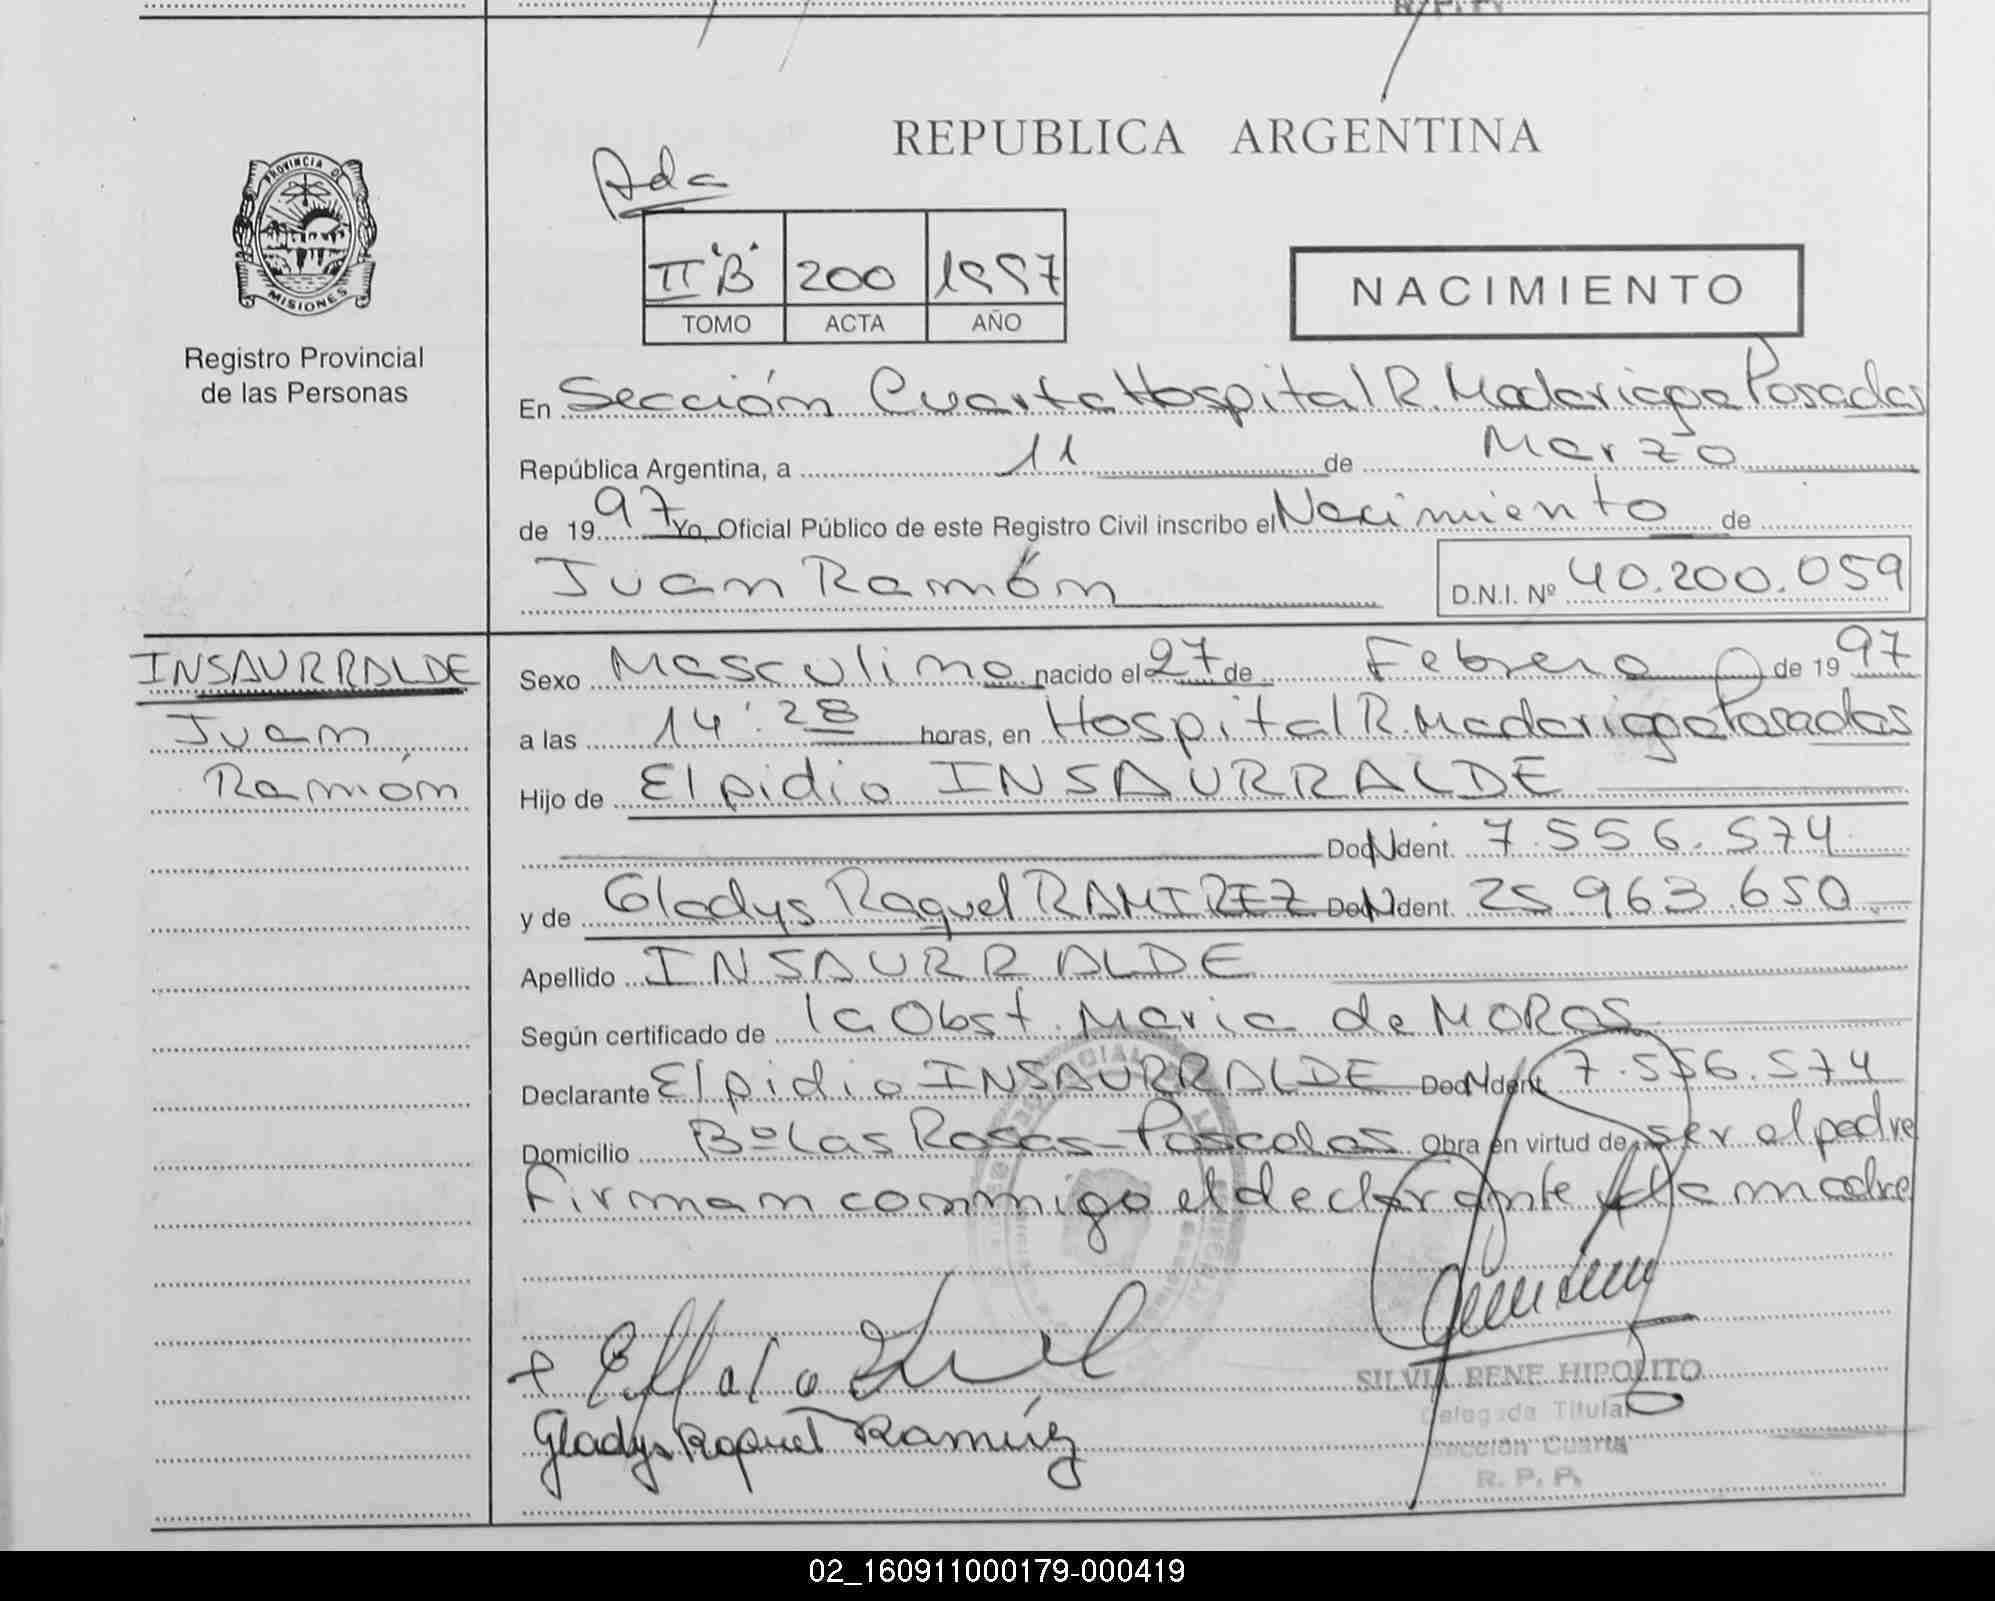 R. P. P.
PROVINCIA DE
MISIONES
Registro Provincial
de las Personas
REPUBLICA ARGENTINA
Ada
II "B" 200 1997
TOMO ACTA AÑO
NACIMIENTO
En Sección Cuarta Hospital R. Madariaga Posadas
República Argentina, a 11 de Marzo
de 1997 Yo, Oficial Público de este Registro Civil inscribo el Nacimiento de
Juan Ramón D.N.I. Nº 40.200.059
INSAURRALDE
Juan
Ramón
Sexo Masculino nacido el 27 de Febrero de 1997
a las 14:28 horas, en Hospital R. Madariaga Posadas
Hijo de Elpidio INSAURRALDE
Doc. Ident. 7.556.574
y de Gladys Raquel RAMIREZ Doc. Ident. 25.963.650
Apellido INSAURRALDE
Según certificado de la Obst. Maria de MOROS
Declarante Elpidio INSAURRALDE Doc. Ident. 7.556.574
Domicilio Bº Las Rosas - Posadas Obra en virtud de ser el padre
Firman conmigo el declarante y la madre
Gladys Raquel Ramírez
SILVIA RENE HIPOLITO
Delegada Titular
Sección Cuarta
R. P. P.
02_160911000179-000419